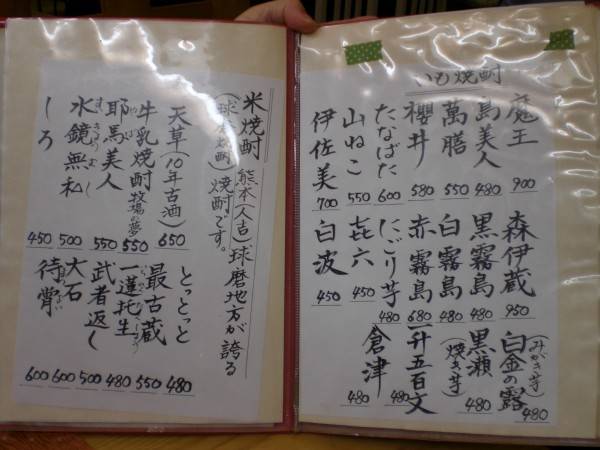 いも焼酎
魔王 900
島美人 480
萬膳 550
櫻井 580
たなばた 600
山ねこ 550
伊佐美 700
森伊蔵 950
黒霧島 480
白霧島 480
赤霧島 680
にごり芋 480
㐂六 450
白波 450
(みがき芋)
白金の露 480
黒瀬 480
(焼き芋)
一升五百文 480
倉津 480
米焼酎 熊本(人吉)球磨地方が誇る
(球磨焼酎)焼酎です。
天草(10年古酒) 650
牛乳焼酎 牧場の夢 550
耶馬美人 550
やば
水鏡無私 500
すいきょうむし
しろ 450
とっとっと 480
最古蔵 550
一蓮托生 480
武者返し 500
大石 600
待宵 600
まつよい